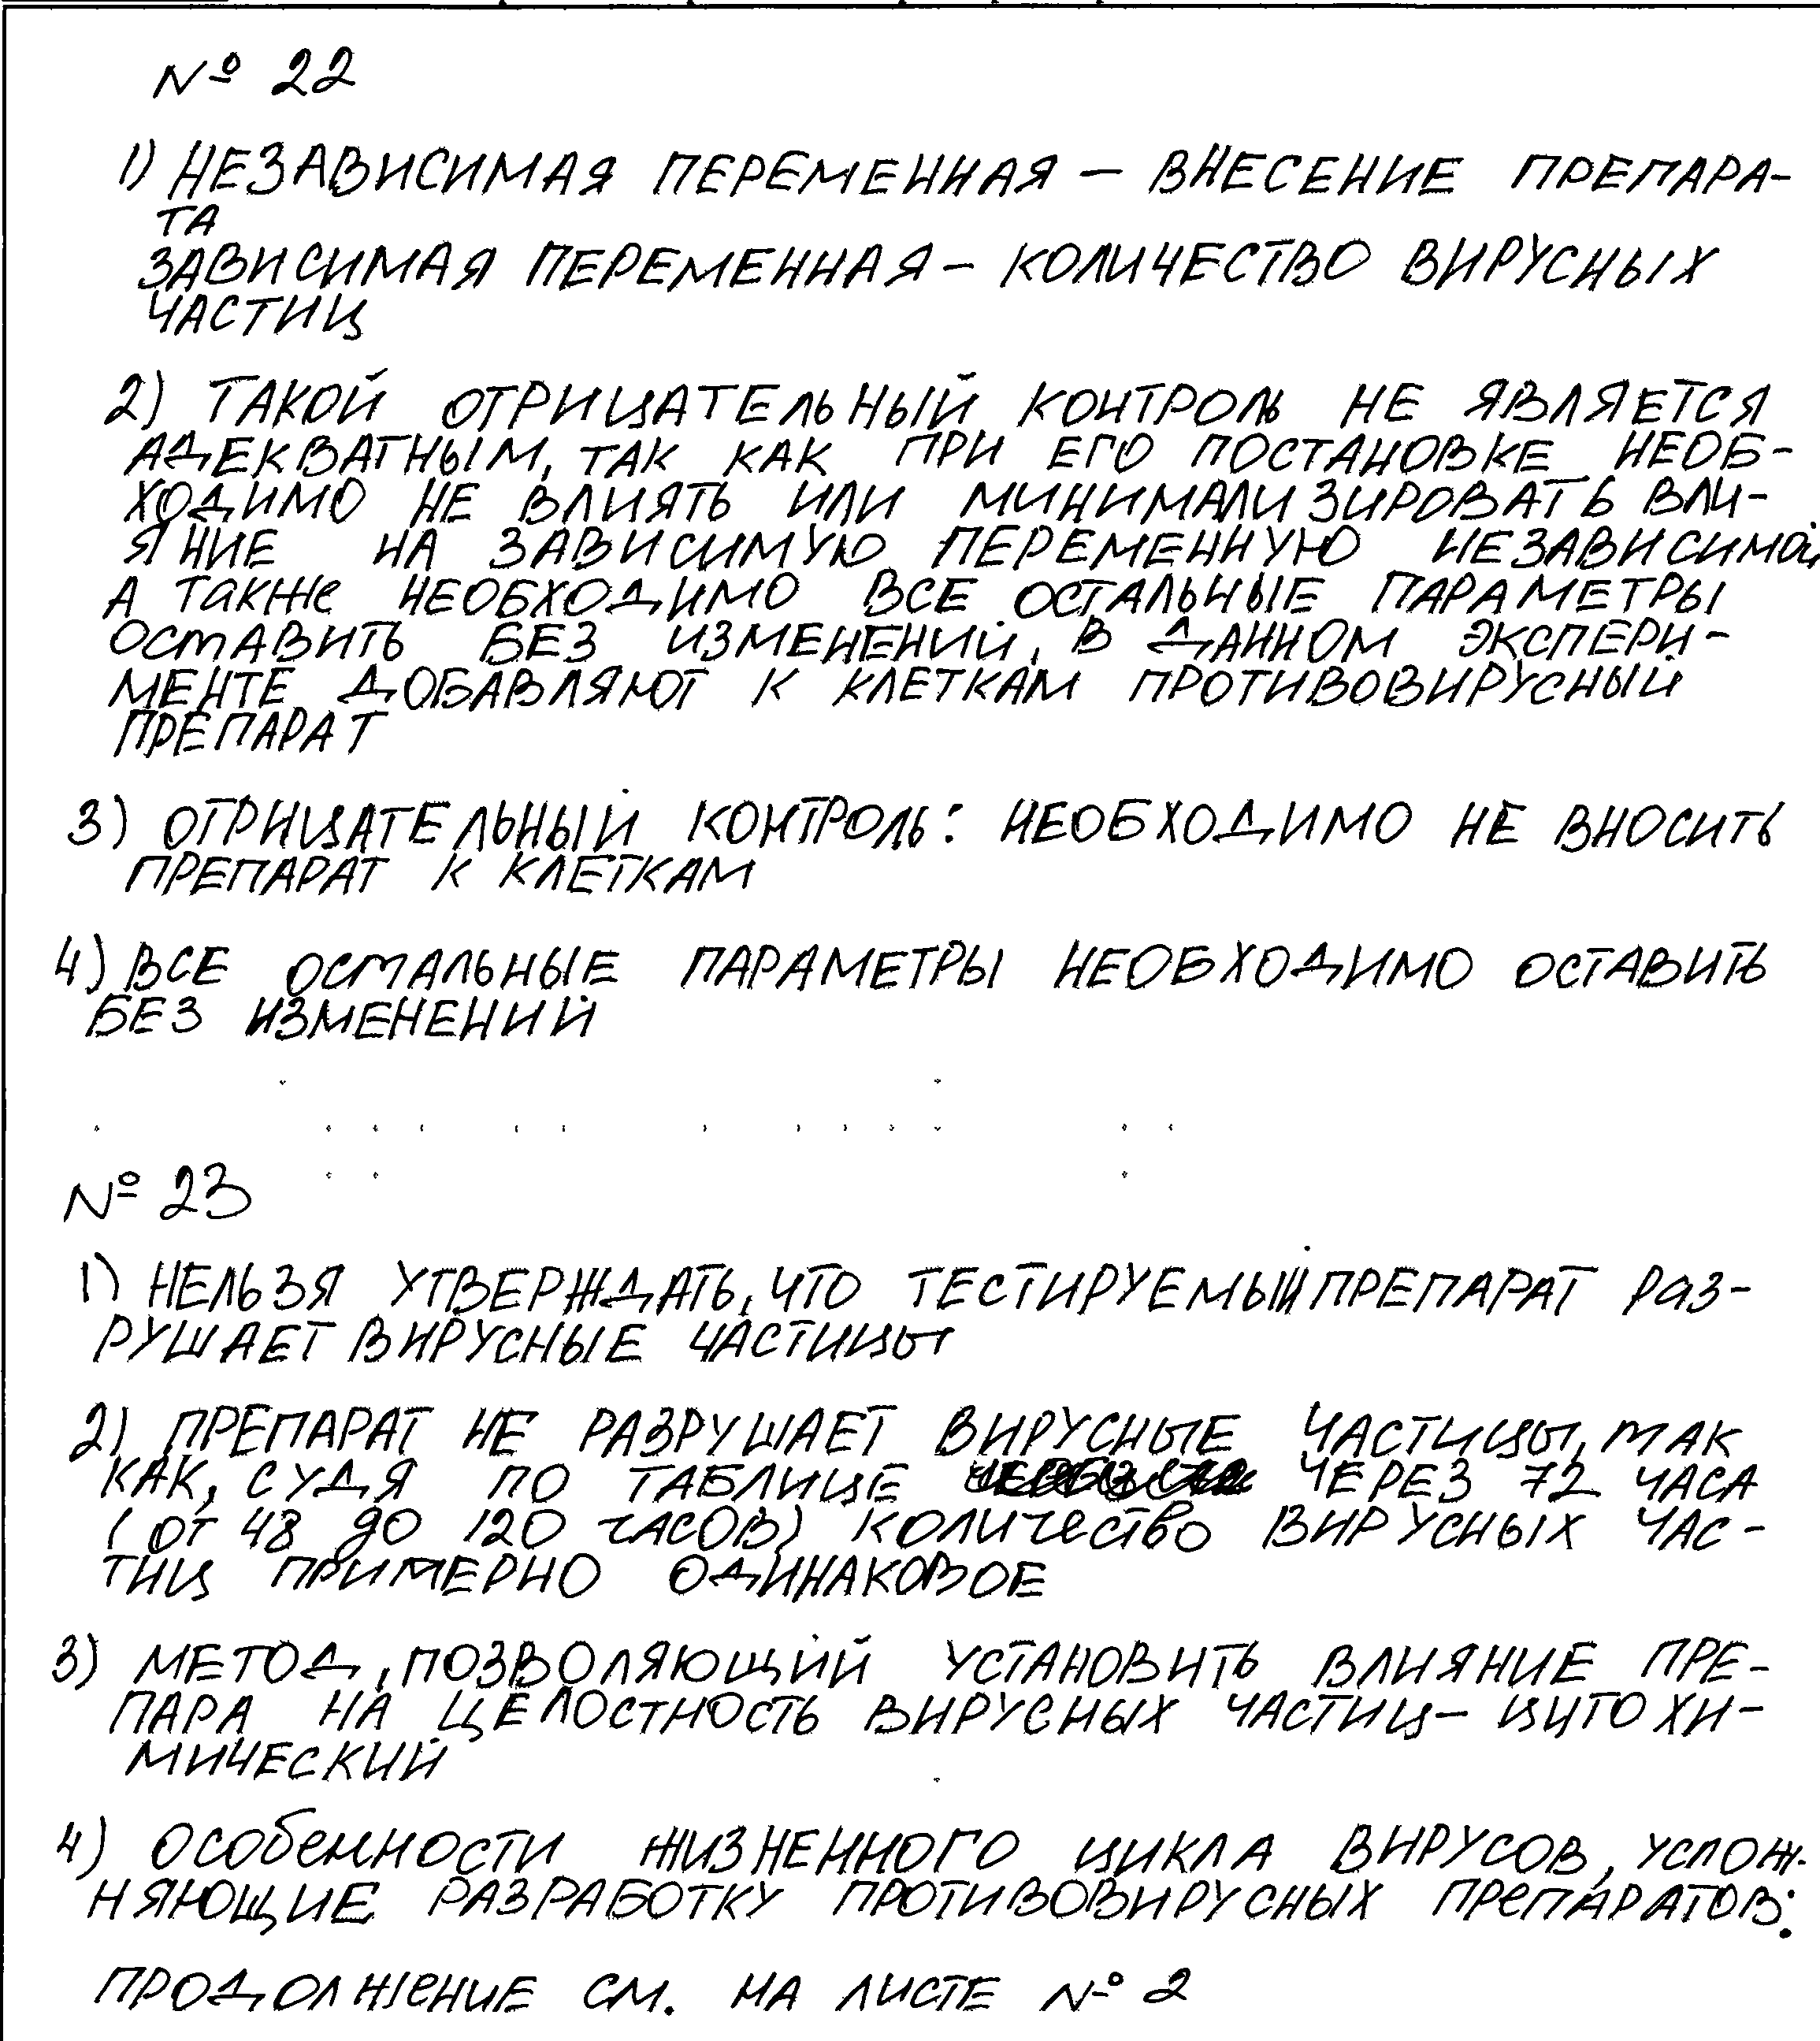 № 22
1) НЕЗАВИСИМАЯ ПЕРЕМЕННАЯ – ВНЕСЕНИЕ ПРЕПАРА-
ТА
ЗАВИСИМАЯ ПЕРЕМЕННАЯ – КОЛИЧЕСТВО ВИРУСНЫХ
ЧАСТИЦ
2) ТАКОЙ ОТРИЦАТЕЛЬНЫЙ КОНТРОЛЬ НЕ ЯВЛЯЕТСЯ
АДЕКВАТНЫМ, ТАК КАК ПРИ ЕГО ПОСТАНОВКЕ НЕОБ-
ХОДИМО НЕ ВЛИЯТЬ ИЛИ МИНИМАЛИЗИРОВАТЬ ВЛИ-
ЯНИЕ НА ЗАВИСИМУЮ ПЕРЕМЕННУЮ НЕЗАВИСИМОЙ,
А ТАКЖЕ НЕОБХОДИМО ВСЕ ОСТАЛЬНЫЕ ПАРАМЕТРЫ
ОСТАВИТЬ БЕЗ ИЗМЕНЕНИЙ, В ДАННОМ ЭКСПЕРИ-
МЕНТЕ ДОБАВЛЯЮТ К КЛЕТКАМ ПРОТИВОВИРУСНЫЙ
ПРЕПАРАТ
3) ОТРИЦАТЕЛЬНЫЙ КОНТРОЛЬ: НЕОБХОДИМО НЕ ВНОСИТЬ
ПРЕПАРАТ К КЛЕТКАМ
4) ВСЕ ОСТАЛЬНЫЕ ПАРАМЕТРЫ НЕОБХОДИМО ОСТАВИТЬ
БЕЗ ИЗМЕНЕНИЙ
№ 23
1) НЕЛЬЗЯ УТВЕРЖДАТЬ, ЧТО ТЕСТИРУЕМЫЙ ПРЕПАРАТ РАЗ-
РУШАЕТ ВИРУСНЫЕ ЧАСТИЦЫ
2) ПРЕПАРАТ НЕ РАЗРУШАЕТ ВИРУСНЫЕ ЧАСТИЦЫ, ТАК
КАК, СУДЯ ПО ТАБЛИЦЕ ЧЕРЕЗ 72 ЧАСА
(ОТ 48 ДО 120 ЧАСОВ) КОЛИЧЕСТВО ВИРУСНЫХ ЧАС-
ТИЦ ПРИМЕРНО ОДИНАКОВОЕ
3) МЕТОД, ПОЗВОЛЯЮЩИЙ УСТАНОВИТЬ ВЛИЯНИЕ ПРЕ-
ПАРА НА ЦЕЛОСТНОСТЬ ВИРУСНЫХ ЧАСТИЦ – ЦИТОХИ-
МИЧЕСКИЙ
4) ОСОБЕННОСТИ ЖИЗНЕННОГО ЦИКЛА ВИРУСОВ, УСЛОЖ-
НЯЮЩИЕ РАЗРАБОТКУ ПРОТИВОВИРУСНЫХ ПРЕПАРАТОВ:
ПРОДОЛЖЕНИЕ СМ. НА ЛИСТЕ № 2